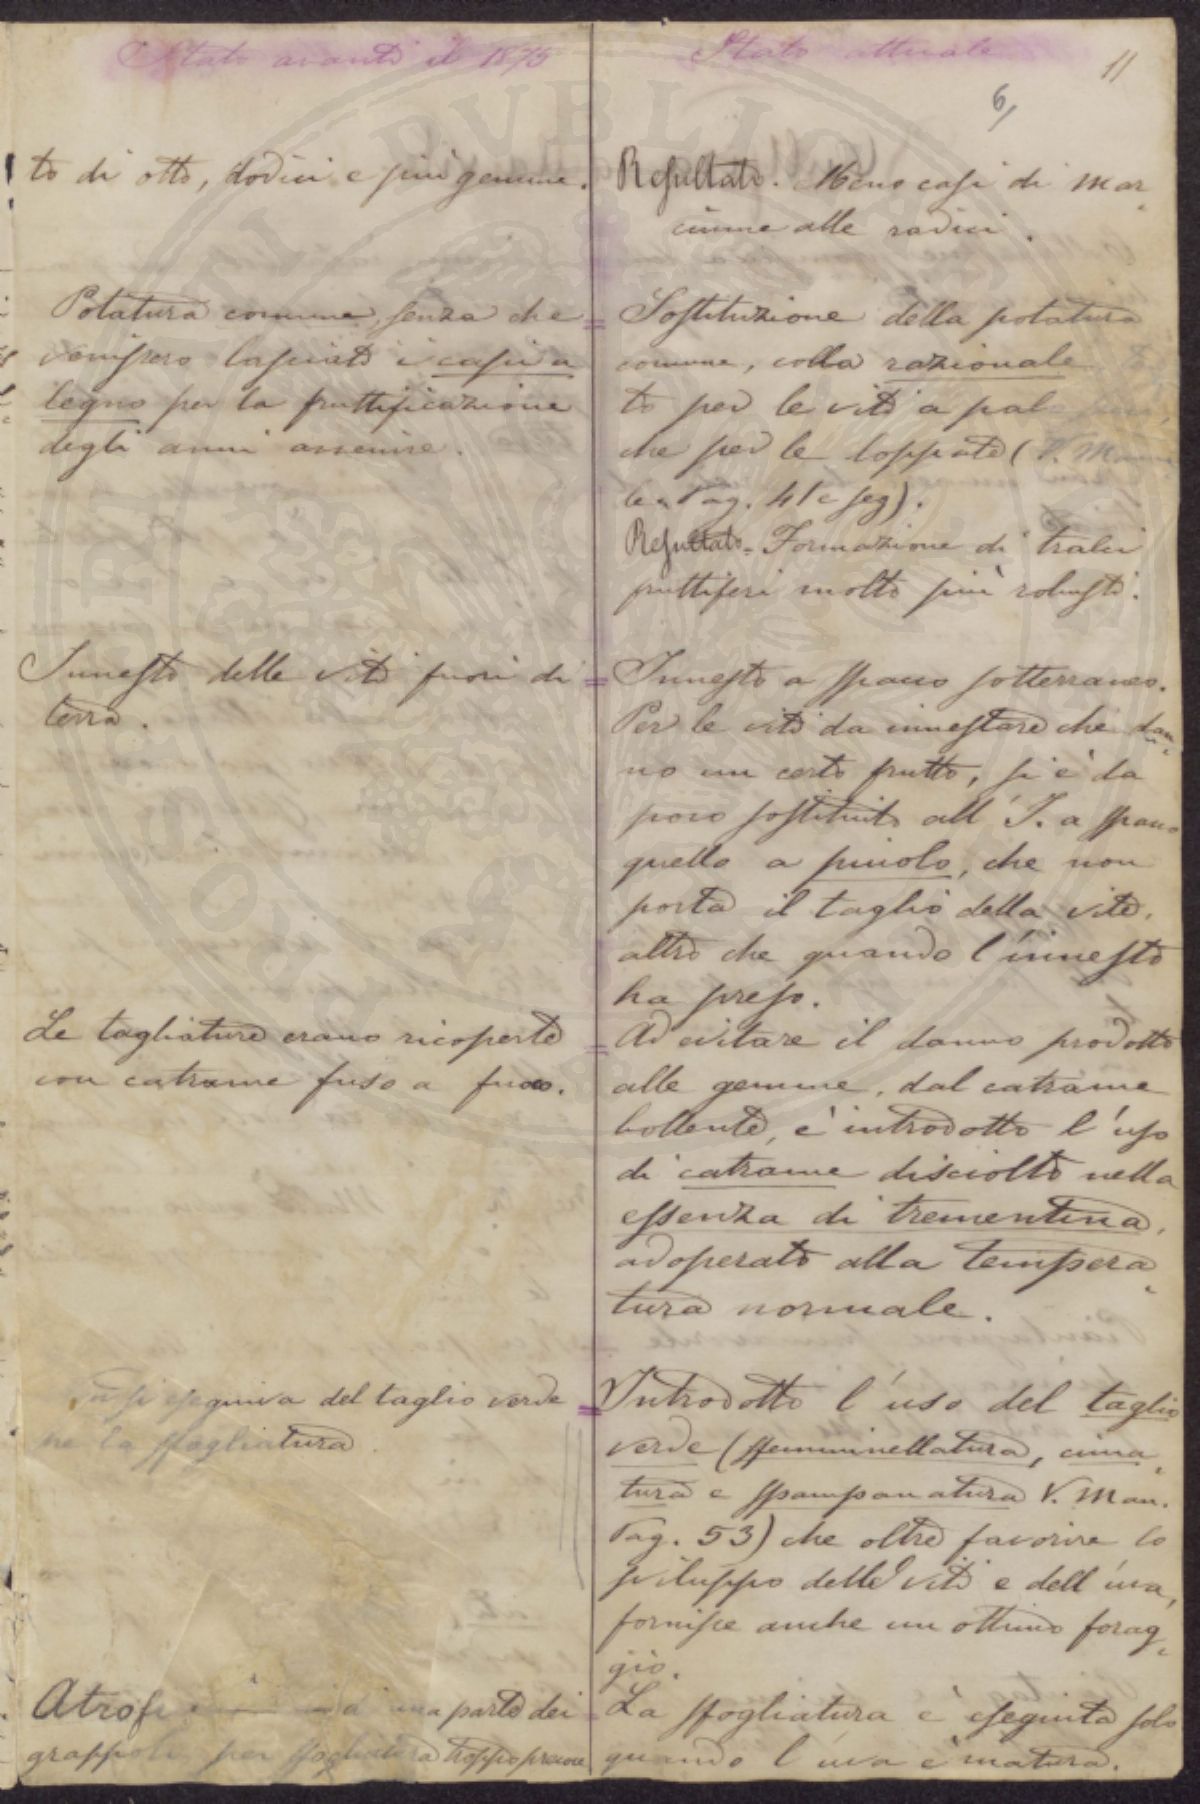 Stato avanti il 1875
to di otto, dodici e più gemme.
Potatura comune, senza che
venissero lasciati i capi a
legno per la fruttificazione
degli anni avvenire.
Innesto delle viti fuori di
terra.
Le tagliature erano ricoperte
con catrame fuso a fuoco.
si eseguiva del taglio verde
ne la sfogliatura
Atrofi di una parte dei
grappoli per sfogliatura troppo precoce
Stato attuale
11
6/
Resultato. Meno casi di mar
ciume alle radici.
Sostituzione della potatura
comune, colla razionale
to per le viti a palo
che per le loppate (V. Manua
le Pag. 41 e seg).
Resultato - Formazione di tralci
fruttiferi molto più robusti.
Innesto a spacco sotterraneo.
Per le viti da innestare che dan
no un certo frutto, si è da
poco sostituito all' I. a spacco
quello a piuolo, che non
porta il taglio della vite,
altro che quando l'innesto
ha preso.
Ad evitare il danno prodotto
alle gemme, dal catrame
bollente, è introdotto l'uso
di catrame disciolto nella
essenza di trementina,
adoperato alla tempera
tura normale.
Introdotto l'uso del taglio
verde (sfemminellatura, cima
tura e spampanatura V. Man.
Pag. 53) che oltre favorire lo
sviluppo delle viti e dell'uva,
fornisce anche un ottimo forag
gio.
La sfogliatura è eseguita solo
quando l'uva è matura.